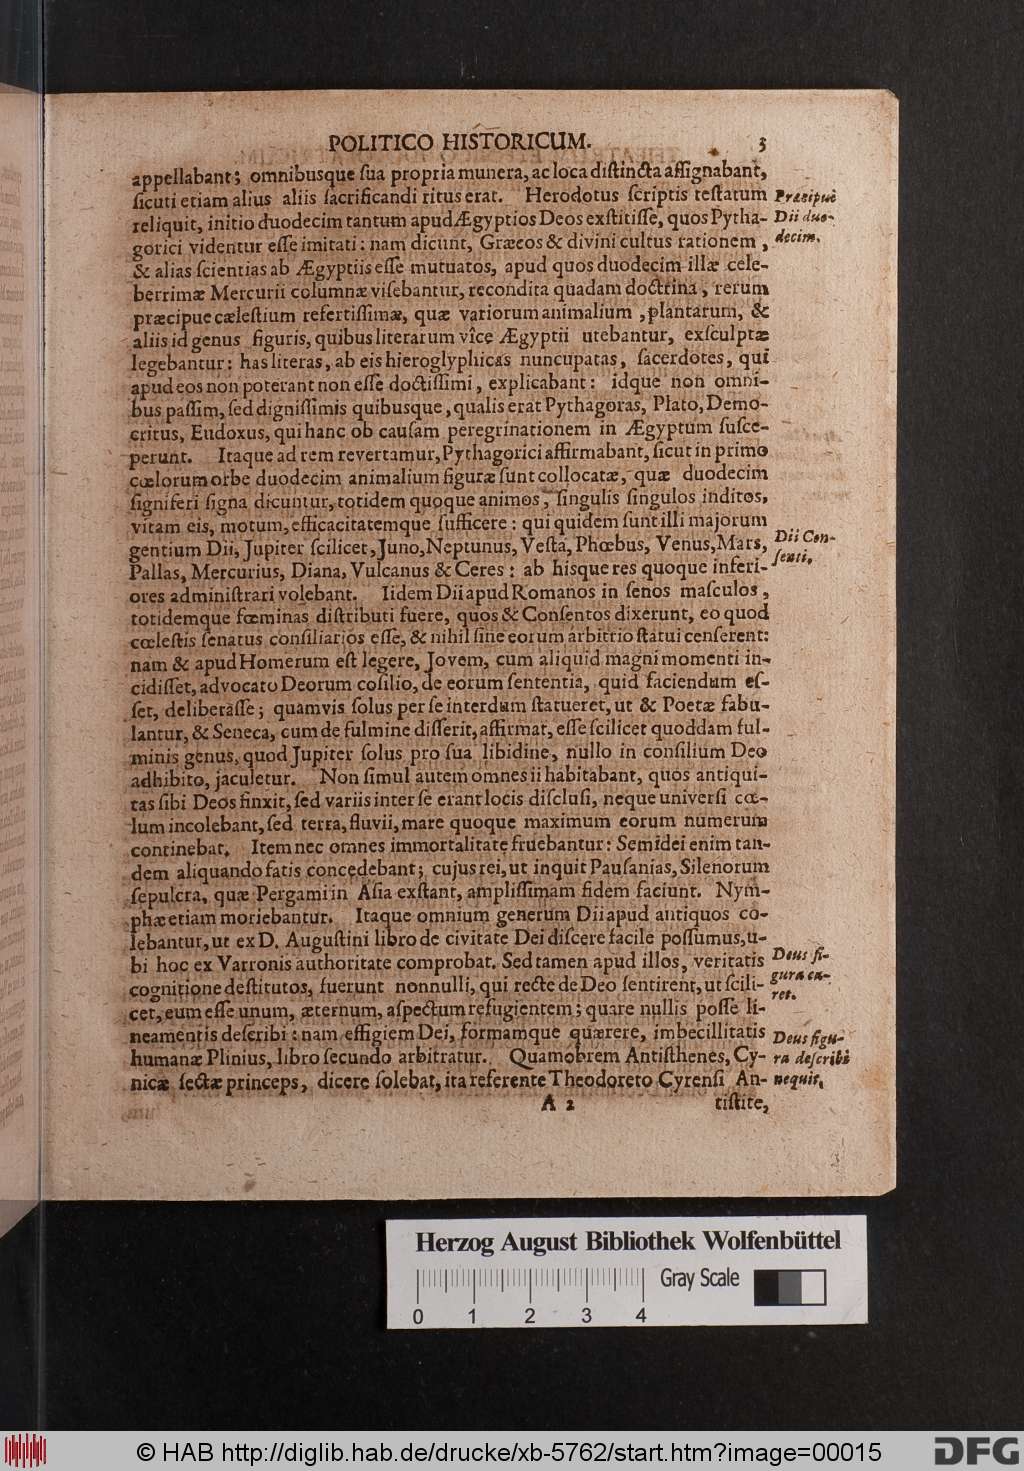 POLITICO HISTORICUM. 3
appellabant; omnibusque ſua propria munera, ac loca diſtincta aſſignabant,
ſicuti etiam alius aliis ſacrificandi ritus erat. Herodotus ſcriptis teſtatum
reliquit, initio duodecim tantum apud Ægyptios Deos exſtitiſſe, quos Pytha-
gorici videntur eſſe imitati: nam dicunt, Græcos & divini cultus rationem,
& alias ſcientias ab Ægyptiis eſſe mutuatos, apud quos duodecim illæ cele-
berrimæ Mercurii columnæ viſebantur, recondita quadam doctrina, rerum
præcipue cæleſtium refertiſſimæ, quæ variorum animalium, plantarum, &
aliis id genus figuris, quibus literarum vîce Ægyptii utebantur, exſculptæ
legebantur: has literas, ab eis hieroglyphicas nuncupatas, ſacerdotes, qui
apud eos non poterant non eſſe doctiſſimi, explicabant: idque non omni-
bus paſſim, ſed digniſſimis quibusque, qualis erat Pythagoras, Plato, Demo-
critus, Eudoxus, qui hanc ob cauſam peregrinationem in Ægyptum ſuſce-
perunt. Itaque ad rem revertamur, Pythagorici affirmabant, ſicut in primo
cœlorum orbe duodecim animalium figuræ ſunt collocatæ, quæ duodecim
ſigniferi ſigna dicuntur, totidem quoque animos, ſingulis ſingulos inditos,
vitam eis, motum, efficacitatemque ſufficere: qui quidem ſunt illi majorum
gentium Dii, Jupiter ſcilicet, Juno, Neptunus, Veſta, Phœbus, Venus, Mars,
Pallas, Mercurius, Diana, Vulcanus & Ceres: ab hisque res quoque inferi-
ores adminiſtrari volebant. Iidem Dii apud Romanos in ſenos maſculos,
totidemque fœminas diſtributi fuere, quos & Conſentos dixerunt, eo quod
cœleſtis ſenatus conſiliarios eſſe, & nihil ſine eorum arbitrio ſtatui cenſerent:
nam & apud Homerum eſt legere, Jovem, cum aliquid magni momenti in-
cidiſſet, advocato Deorum coſilio, de eorum ſententia, quid faciendum eſ-
ſet, deliberâſſe; quamvis ſolus per ſe interdum ſtatueret, ut & Poetæ fabu-
lantur, & Seneca, cum de fulmine diſſerit, affirmat, eſſe ſcilicet quoddam ful-
minis genus, quod Jupiter ſolus pro ſua libidine, nullo in conſilium Deo
adhibito, jaculetur. Non ſimul autem omnes ii habitabant, quos antiqui-
tas ſibi Deos finxit, ſed variis inter ſe erant locis diſcluſi, neque univerſi cœ-
lum incolebant, ſed terra, fluvii, mare quoque maximum eorum numerum
continebat. Item nec omnes immortalitate fruebantur: Semidei enim tan-
dem aliquando fatis concedebant; cujus rei, ut inquit Pauſanias, Silenorum
ſepulcra, quæ Pergami in Aſia exſtant, ampliſſimam fidem faciunt. Nym-
phæ etiam moriebantur. Itaque omnium generum Dii apud antiquos co-
lebantur, ut ex D. Auguſtini libro de civitate Dei diſcere facile poſſumus, u-
bi hoc ex Varronis authoritate comprobat. Sed tamen apud illos, veritatis
cognitione deſtitutos, fuerunt nonnulli, qui recte de Deo ſentirent, ut ſcili-
cet, eum eſſe unum, æternum, aſpectum refugientem; quare nullis poſſe li-
neamentis deſcribi: nam effigiem Dei, formamque quærere, imbecillitatis
humanæ Plinius, libro ſecundo arbitratur. Quamobrem Antiſthenes, Cy-
nicæ ſectæ princeps, dicere ſolebat, ita referente Theodoreto Cyrenſi An-
A 2 tiſtite,
Præcipuè
Dii duo-
decim.
Dii Con-
ſenti,
Deus fi-
gura ca-
ret.
Deus figu-
ra deſcribi
nequit,
Herzog August Bibliothek Wolfenbüttel
Gray Scale
0 1 2 3 4
© HAB http://diglib.hab.de/drucke/xb-5762/start.htm?image=00015
DFG